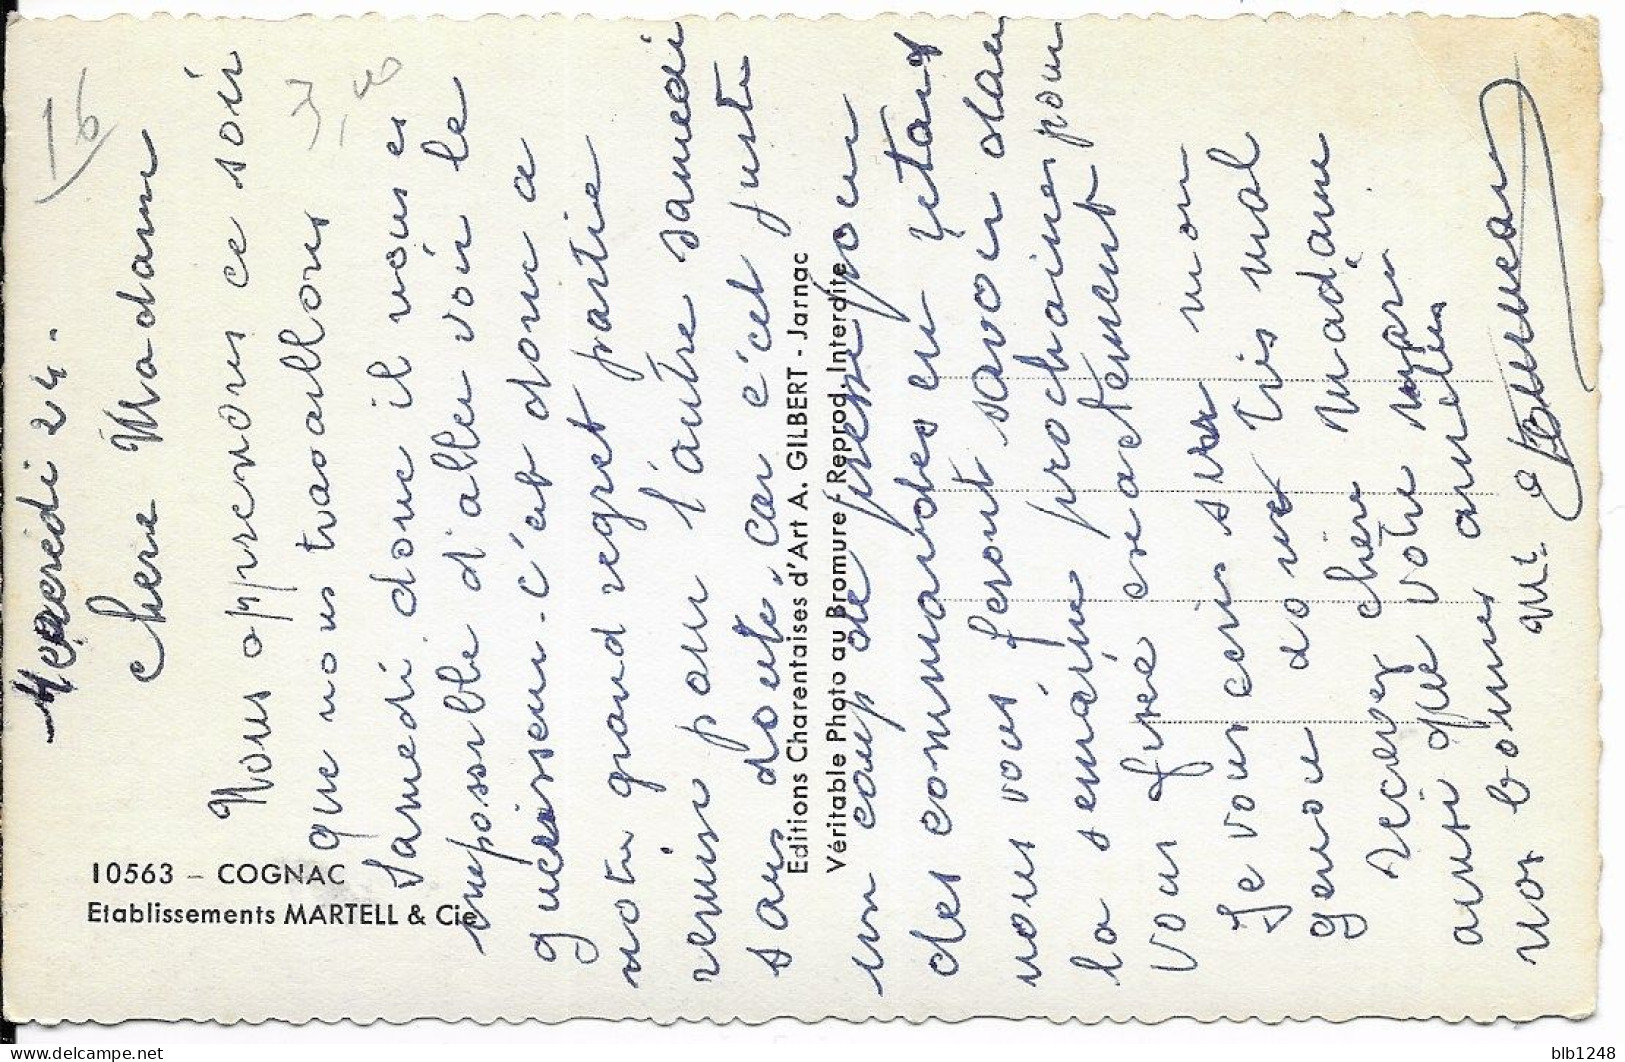 16
Mercredi 24.
Chere Madame
Nous apprenons ce soir
que nous travaillons
Samedi donc il nous es
impossible d'aller voir le
guerisseur. C'est donc a
notre grand regret partie
remise pour l'autre samedi
sans doute, car c'est juste
un coup de presse pour
des commandes en retard
nous vous ferons savoir dans
la semaine prochaine pour
vous fixé exactement
Je vous ecris sur mon
genou donc très mal
Recevez chère Madame
ainsi que votre mari
nos bonnes amitiés
Me
10563 - COGNAC
Etablissements MARTELL & Cie
Editions Charentaises d'Art A. GILBERT - Jarnac
Véritable Photo au Bromure / Reprod. Interdite
delcampe.net
blb1248